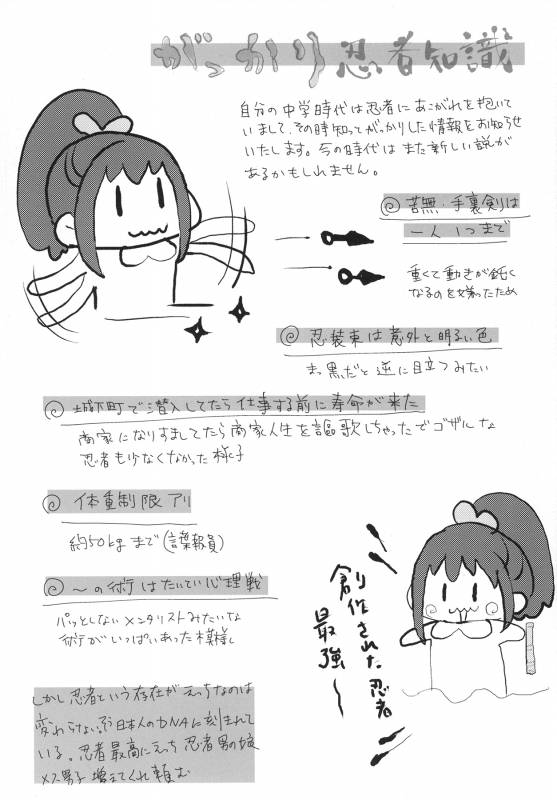 がっかり忍者知識
自分の中学時代は忍者にあこがれを抱いて
いまして、その時知ってがっかりした情報をお知らせ
いたします。今の時代はまた新しい説が
あるかもしれません。
◎ 苦無・手裏剣は
一人1つまで
重くて動きが鈍く
なるのを嫌ったため
◎ 忍装束は意外と明るい色
まっ黒だと逆に目立つみたい
◎ 城下町で潜入してたら仕事する前に寿命が来た
商家になりすましてたら商家人生を謳歌しちゃったでゴザルな
忍者も少なくなかった様子
◎ 体重制限アリ
約50kgまで(諜報員)
◎ 〜の術はたいてい心理戦
パッとしないメンタリストみたいな
術がいっぱいあった模様
創作された忍者
最強〜
しかし忍者という存在がえっちなのは
変わらない。日本人のDNAに刻まれて
いる。忍者最高にえっち 忍者男の娘
メス男子増えてくれ頼む